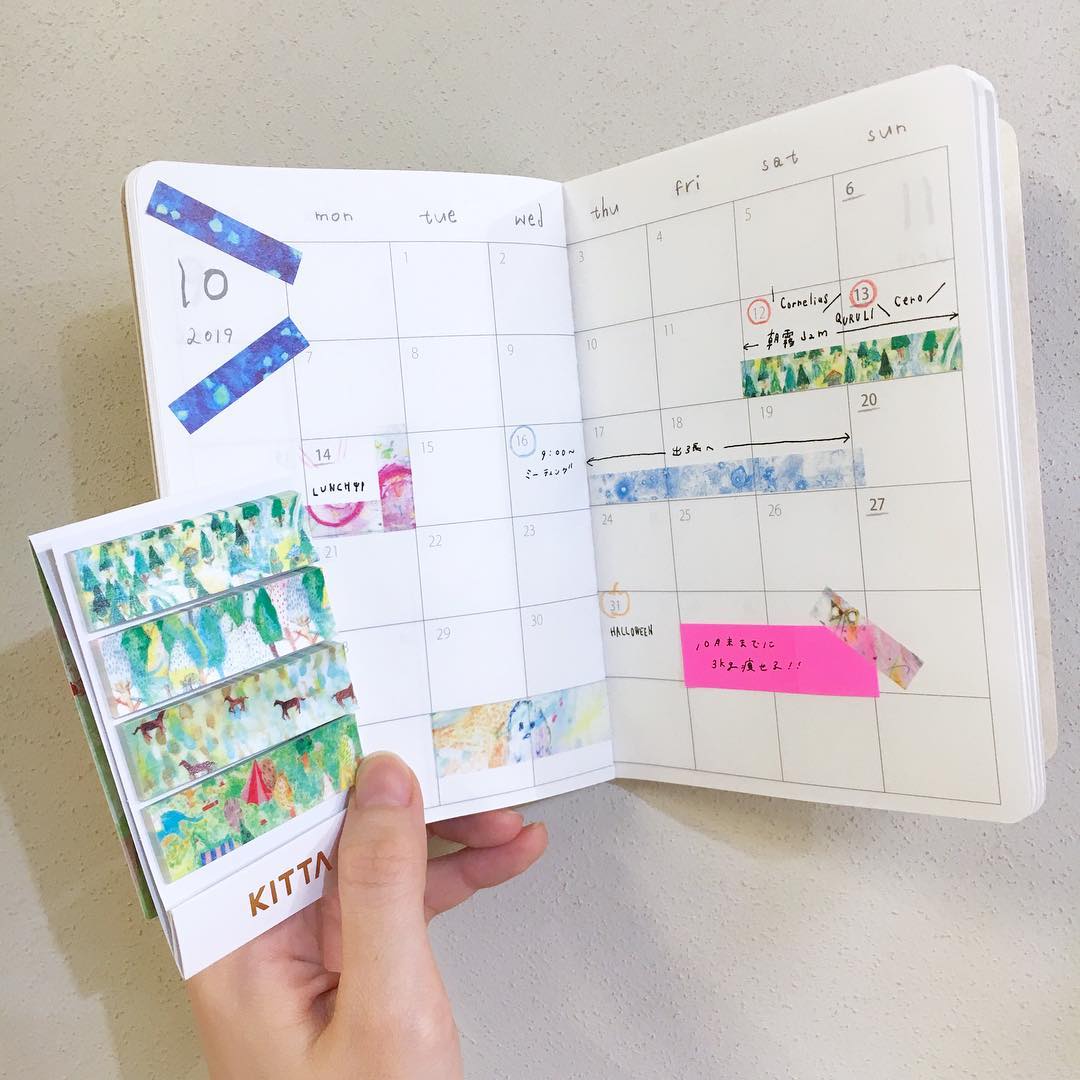 mon tue wed thu fri sat sun
10
2019
1 2 3 4 5 6
7 8 9 10 11 12 13
Cornelius/
QURULI\ Cero/
朝霧Jam
14 15 16 17 18 19 20
LUNCH
9:00～
ミーティング
21 22 23 24 25 26 27
29 30 31
HALLOWEEN
10月末までに
3kg痩せる!!
KITTA